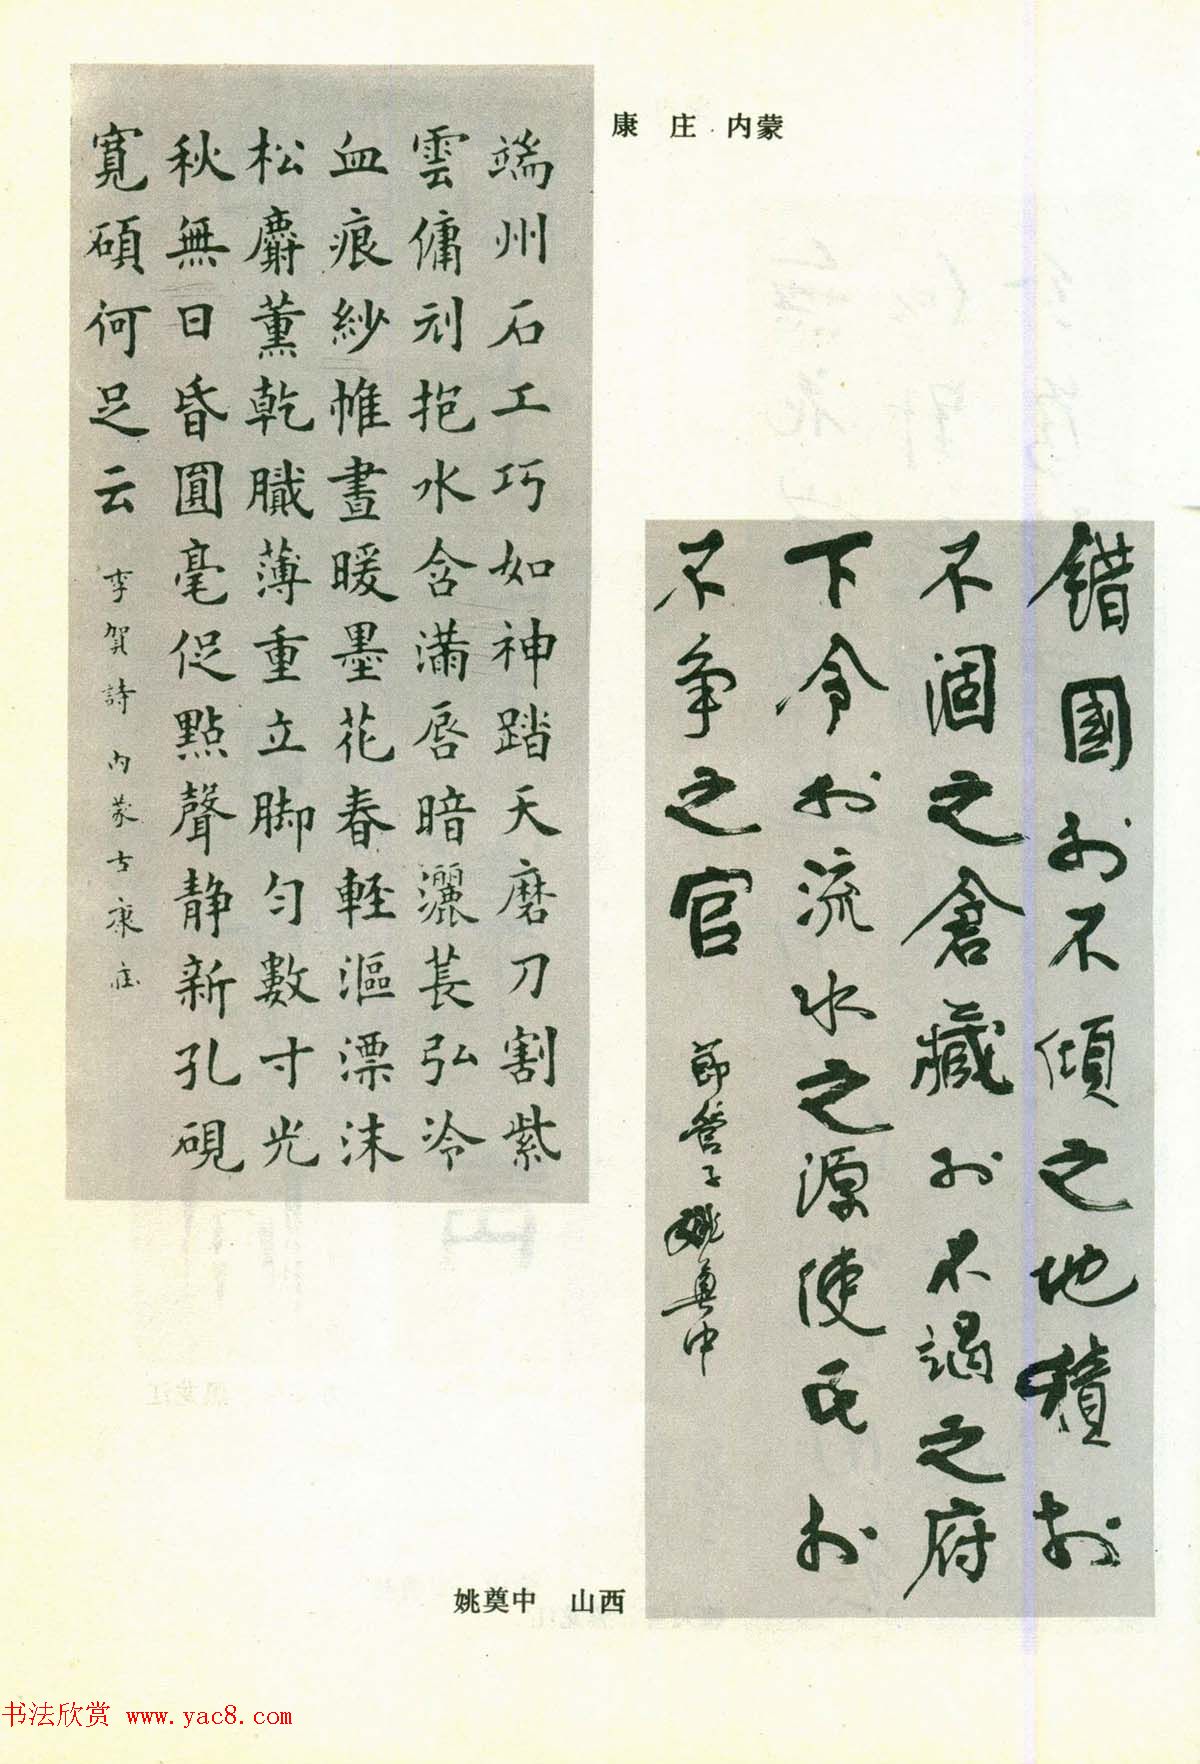 康 庄 内蒙
端州石工巧如神踏天磨刀割紫
雲傭刓抱水含滿唇暗灑萇弘冷
血痕紗帷晝暖墨花春輕漚漂沫
松麝薰乾膩薄重立脚勻數寸光
秋無日昏圓毫促點聲静新孔硯
寬碩何足云
李賀詩 内蒙古康庄
錯國於不傾之地積於
不涸之倉藏於不竭之府
下令於流水之源使民於
不争之官
節管子姚奠中
姚奠中 山西
书法欣赏 www.yac8.com